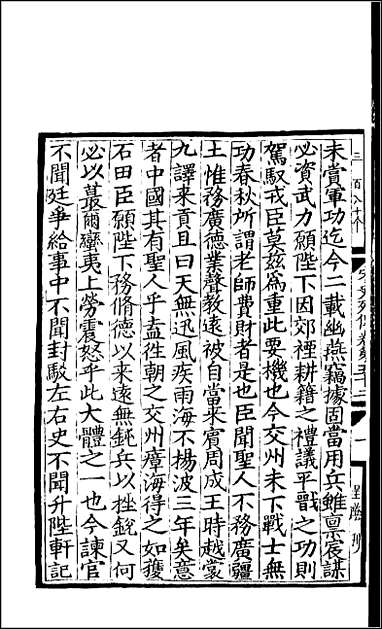 宋史列傳卷第五十二
一
未賞軍功迄今二載幽燕竊據固當用兵雖禀宸謀
必資武力願陛下因郊禋耕籍之禮議平戰之功則
駕馭戎臣莫兹爲重此要機也今交州未下戰士無
功春秋所謂老師費財者是也臣聞聖人不務廣疆
土惟務廣德業聲教遠被自當來賓周成王時越裳
九譯來貢且曰天無迅風疾雨海不揚波三年矣意
者中國其有聖人乎盍往朝之交州瘴海得之如獲
石田臣願陛下務脩德以來遠無鈍兵以挫銳又何
必以蕞爾蠻夷上勞震怒乎此大體之一也今諫官
不聞廷爭給事中不聞封駁左右史不聞升陛軒記